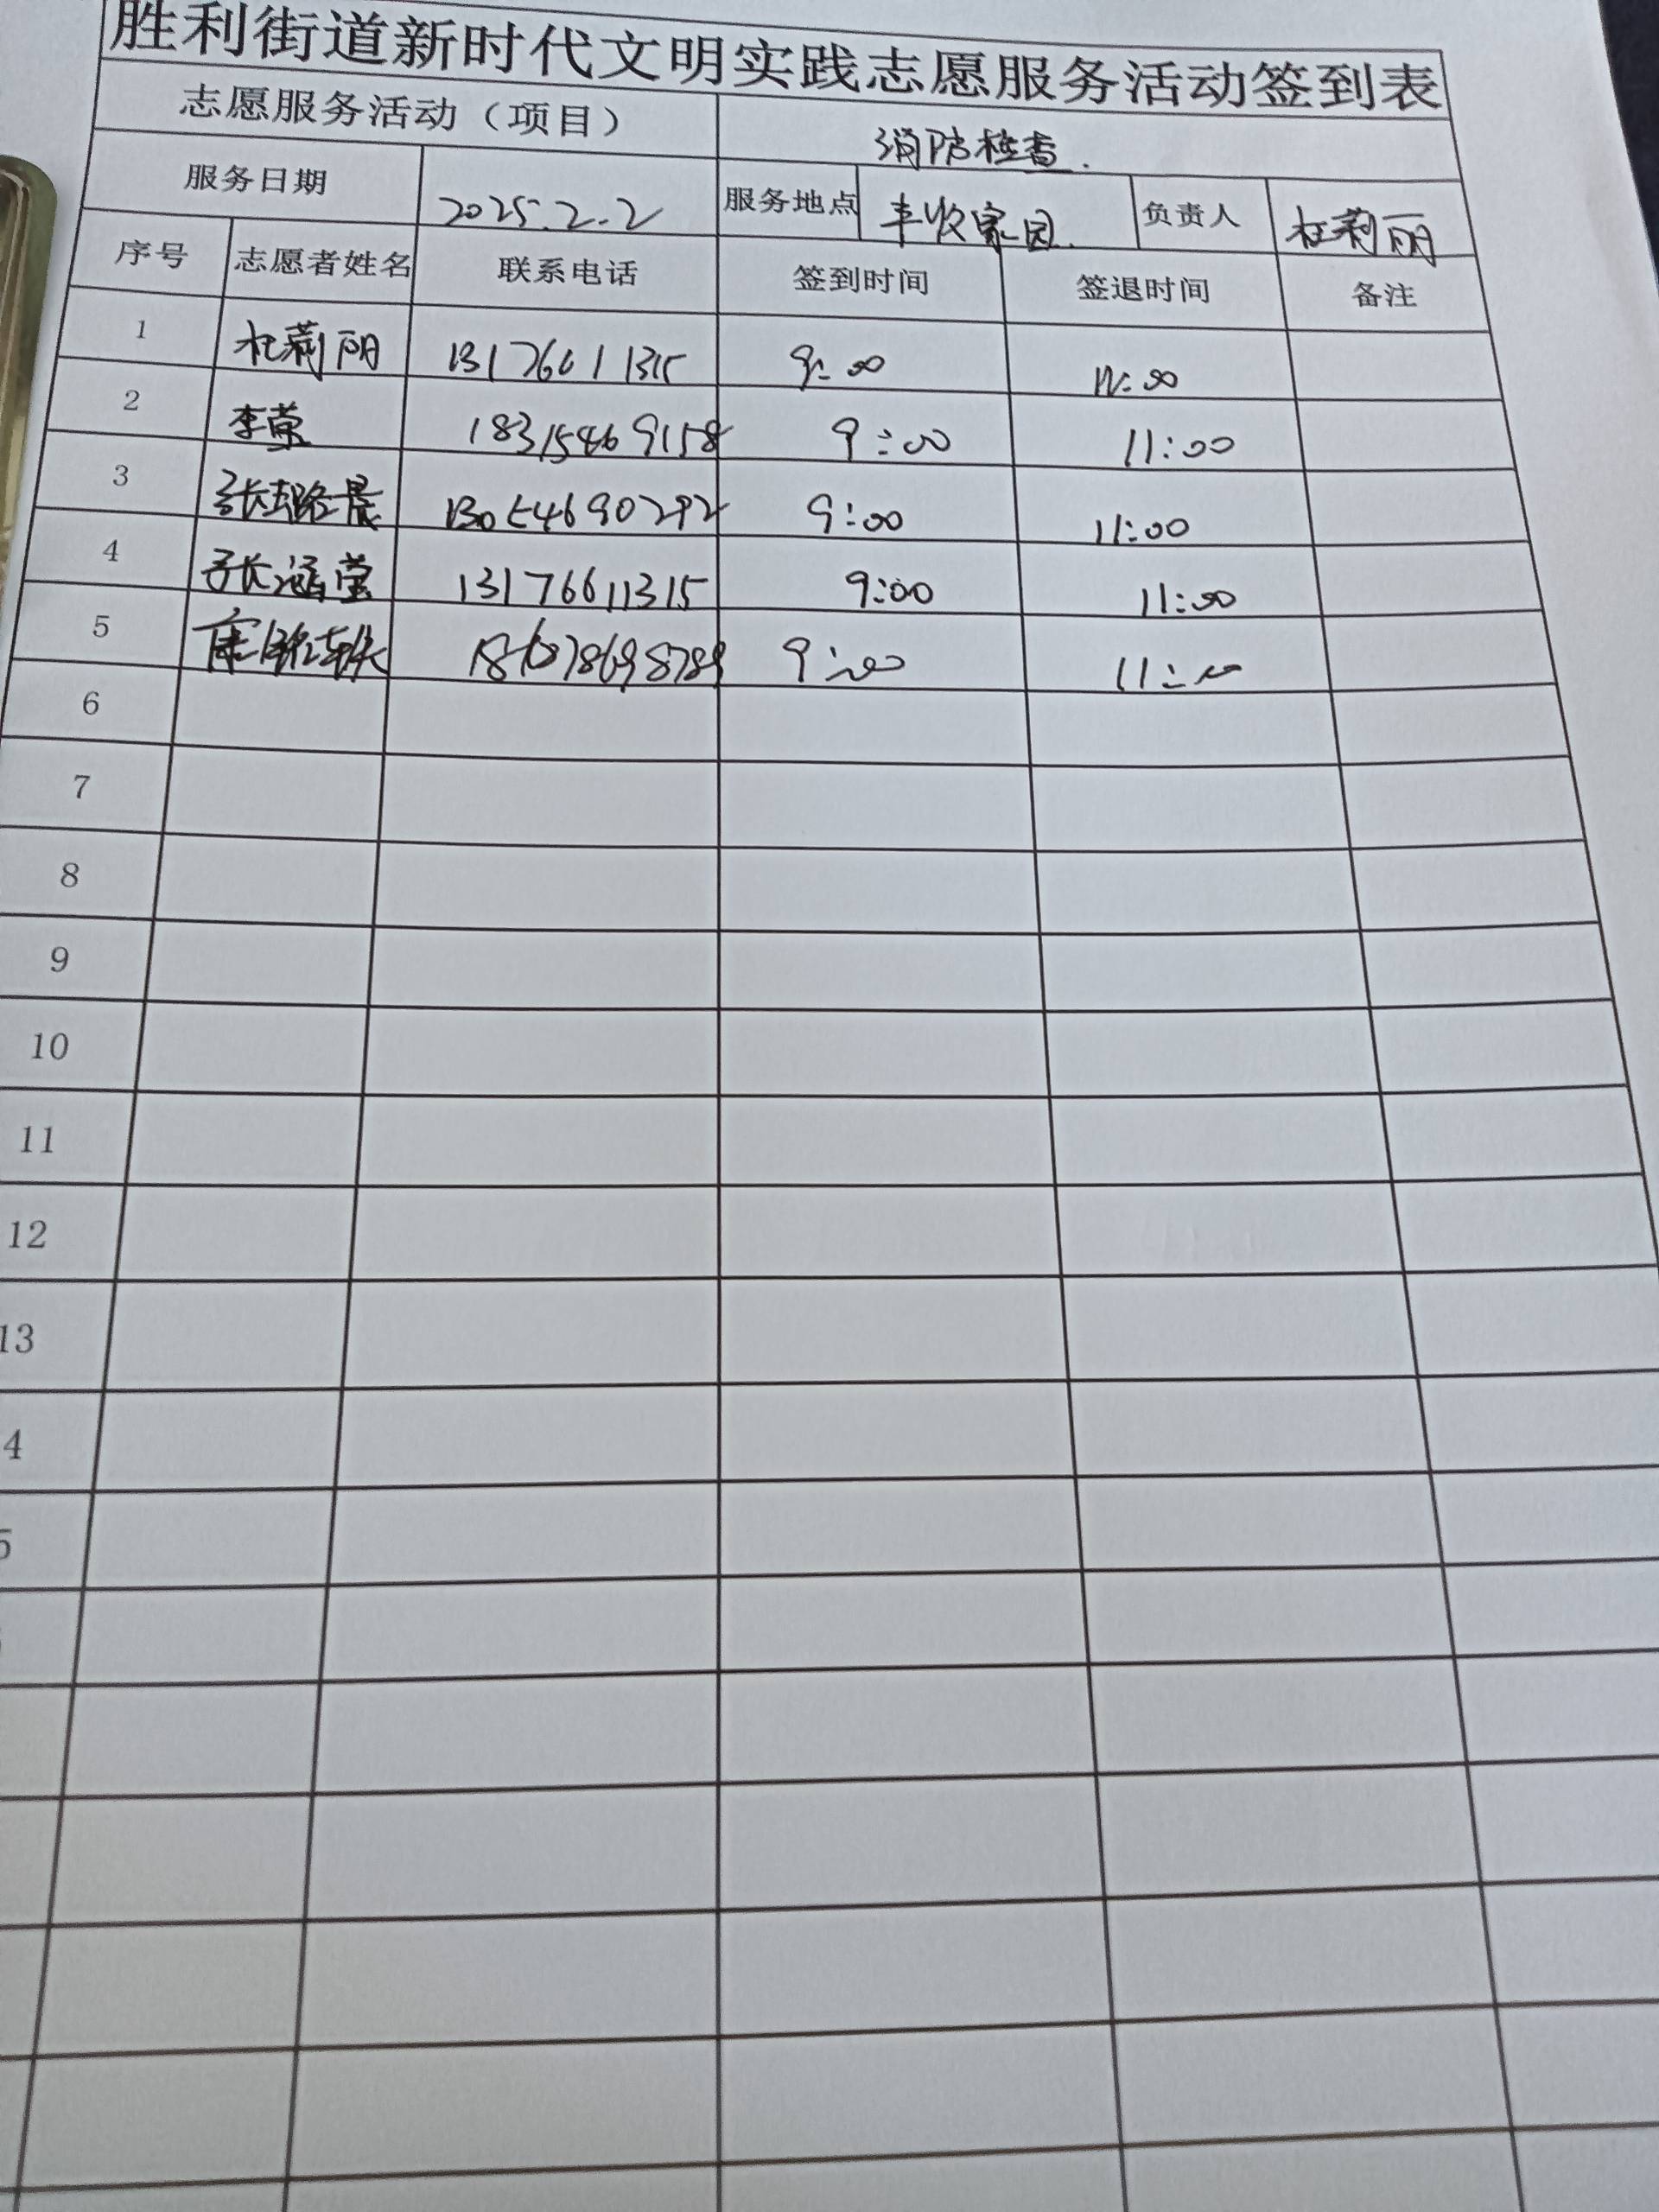 胜利街道新时代文明实践志愿服务活动签到表
志愿服务活动（项目） 消防检查.
服务日期 2025.2.2 服务地点 丰收家园. 负责人 杜莉丽
序号 志愿者姓名 联系电话 签到时间 签退时间 备注
1 杜莉丽 13176611315 9:00 11:00
2 李荣 18315469158 9:00 11:00
3 张璐晨 13054690292 9:00 11:00
4 张涵莹 13176611315 9:00 11:00
5 9:00 11:00
6
7
8
9
10
11
12
13
4
5